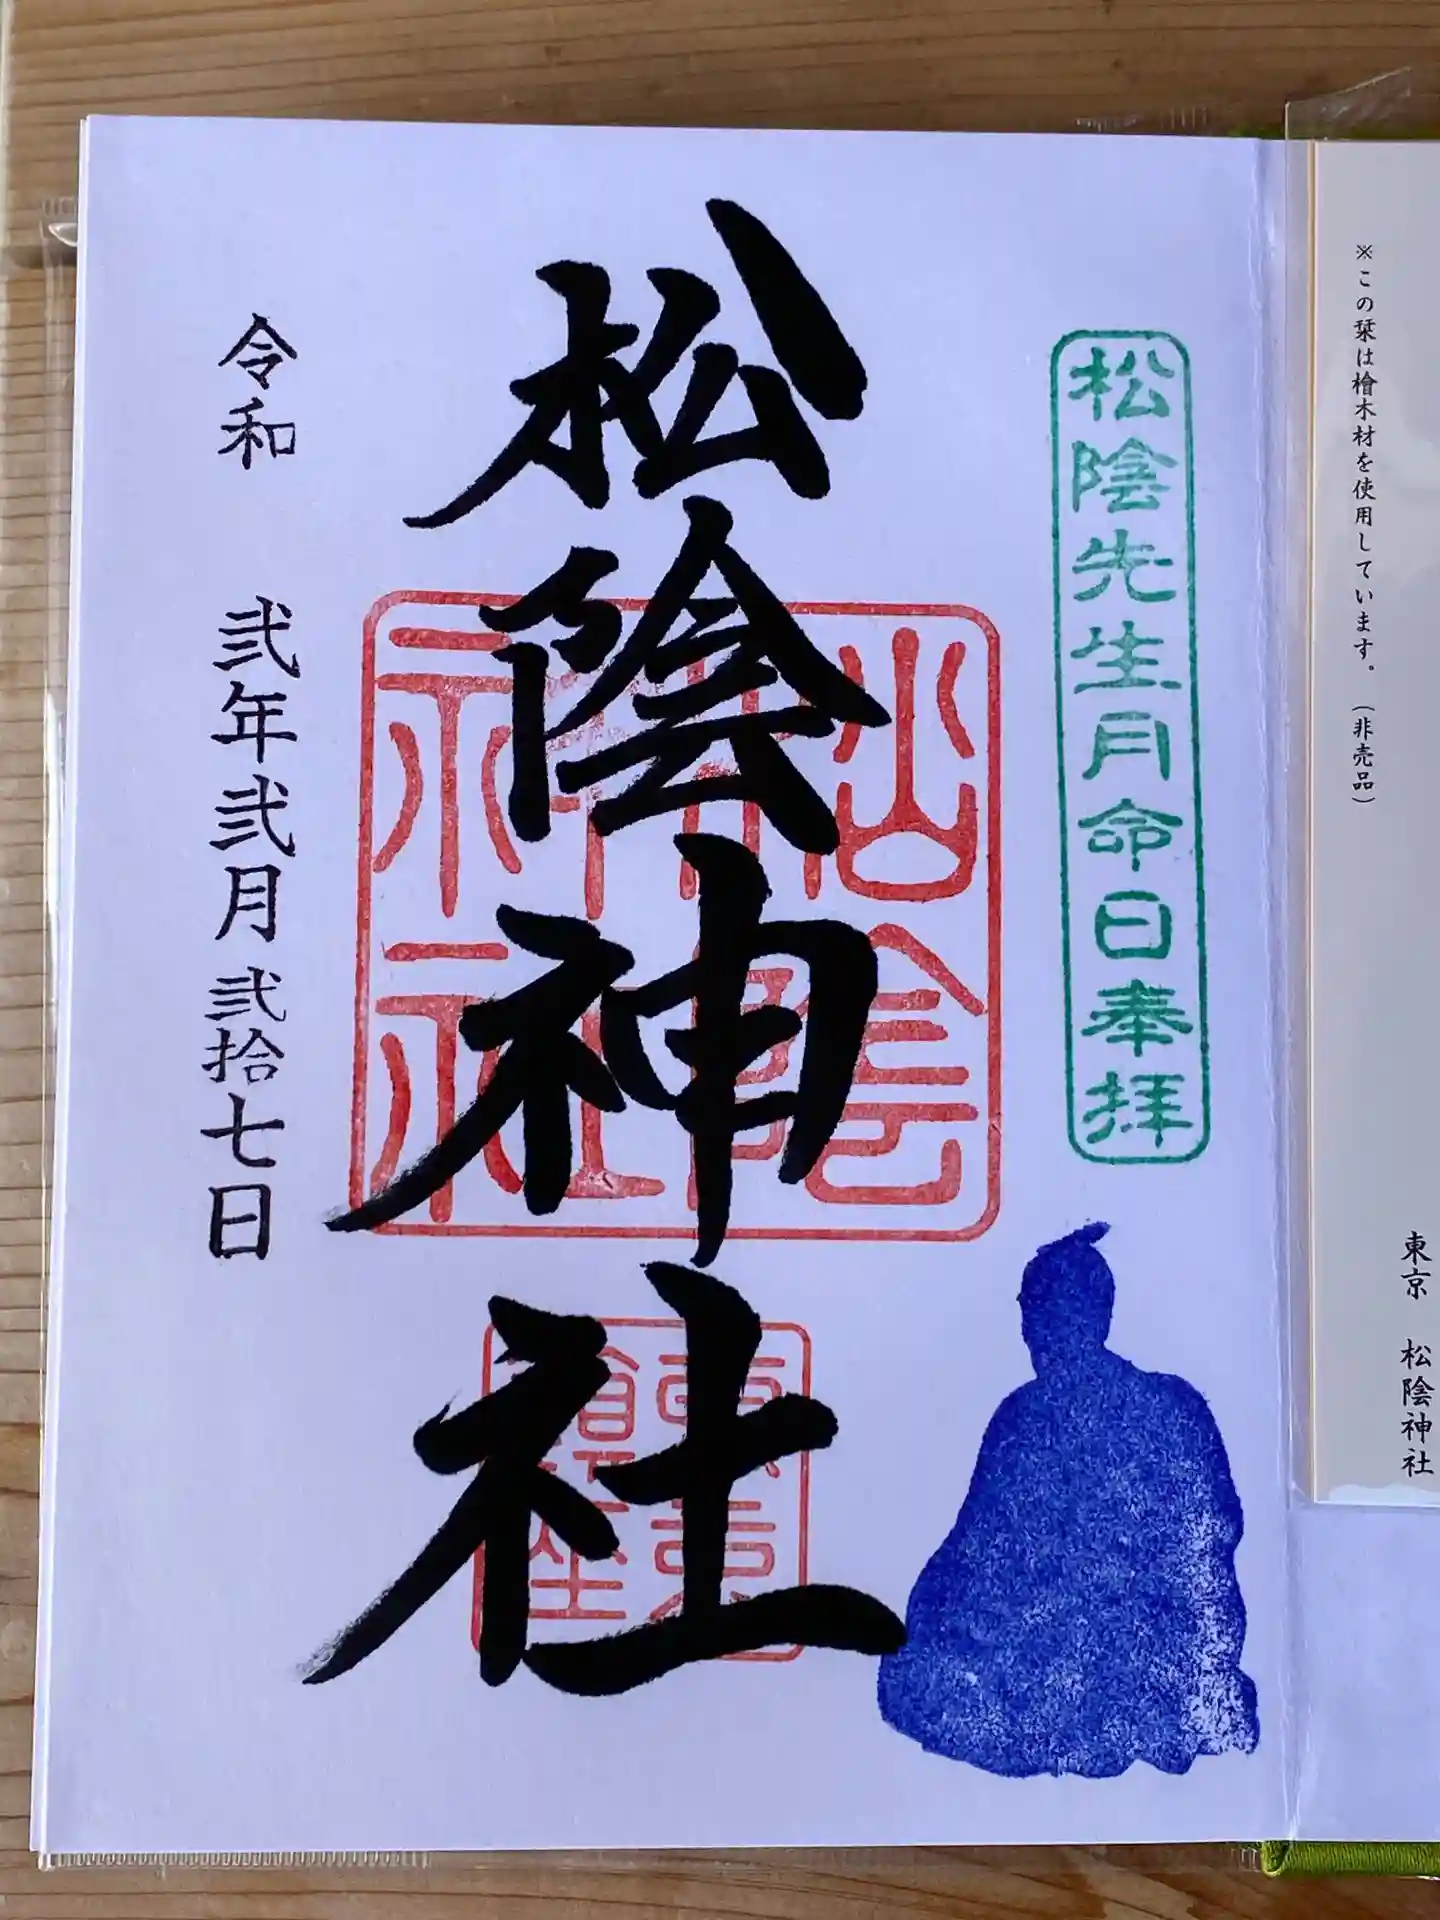 ※この栞は檜木材を使用しています。（非売品）
東京　松陰神社
松陰先生月命日奉拝
松陰神社
松陰
神社
令和　弐年弐月弐拾七日